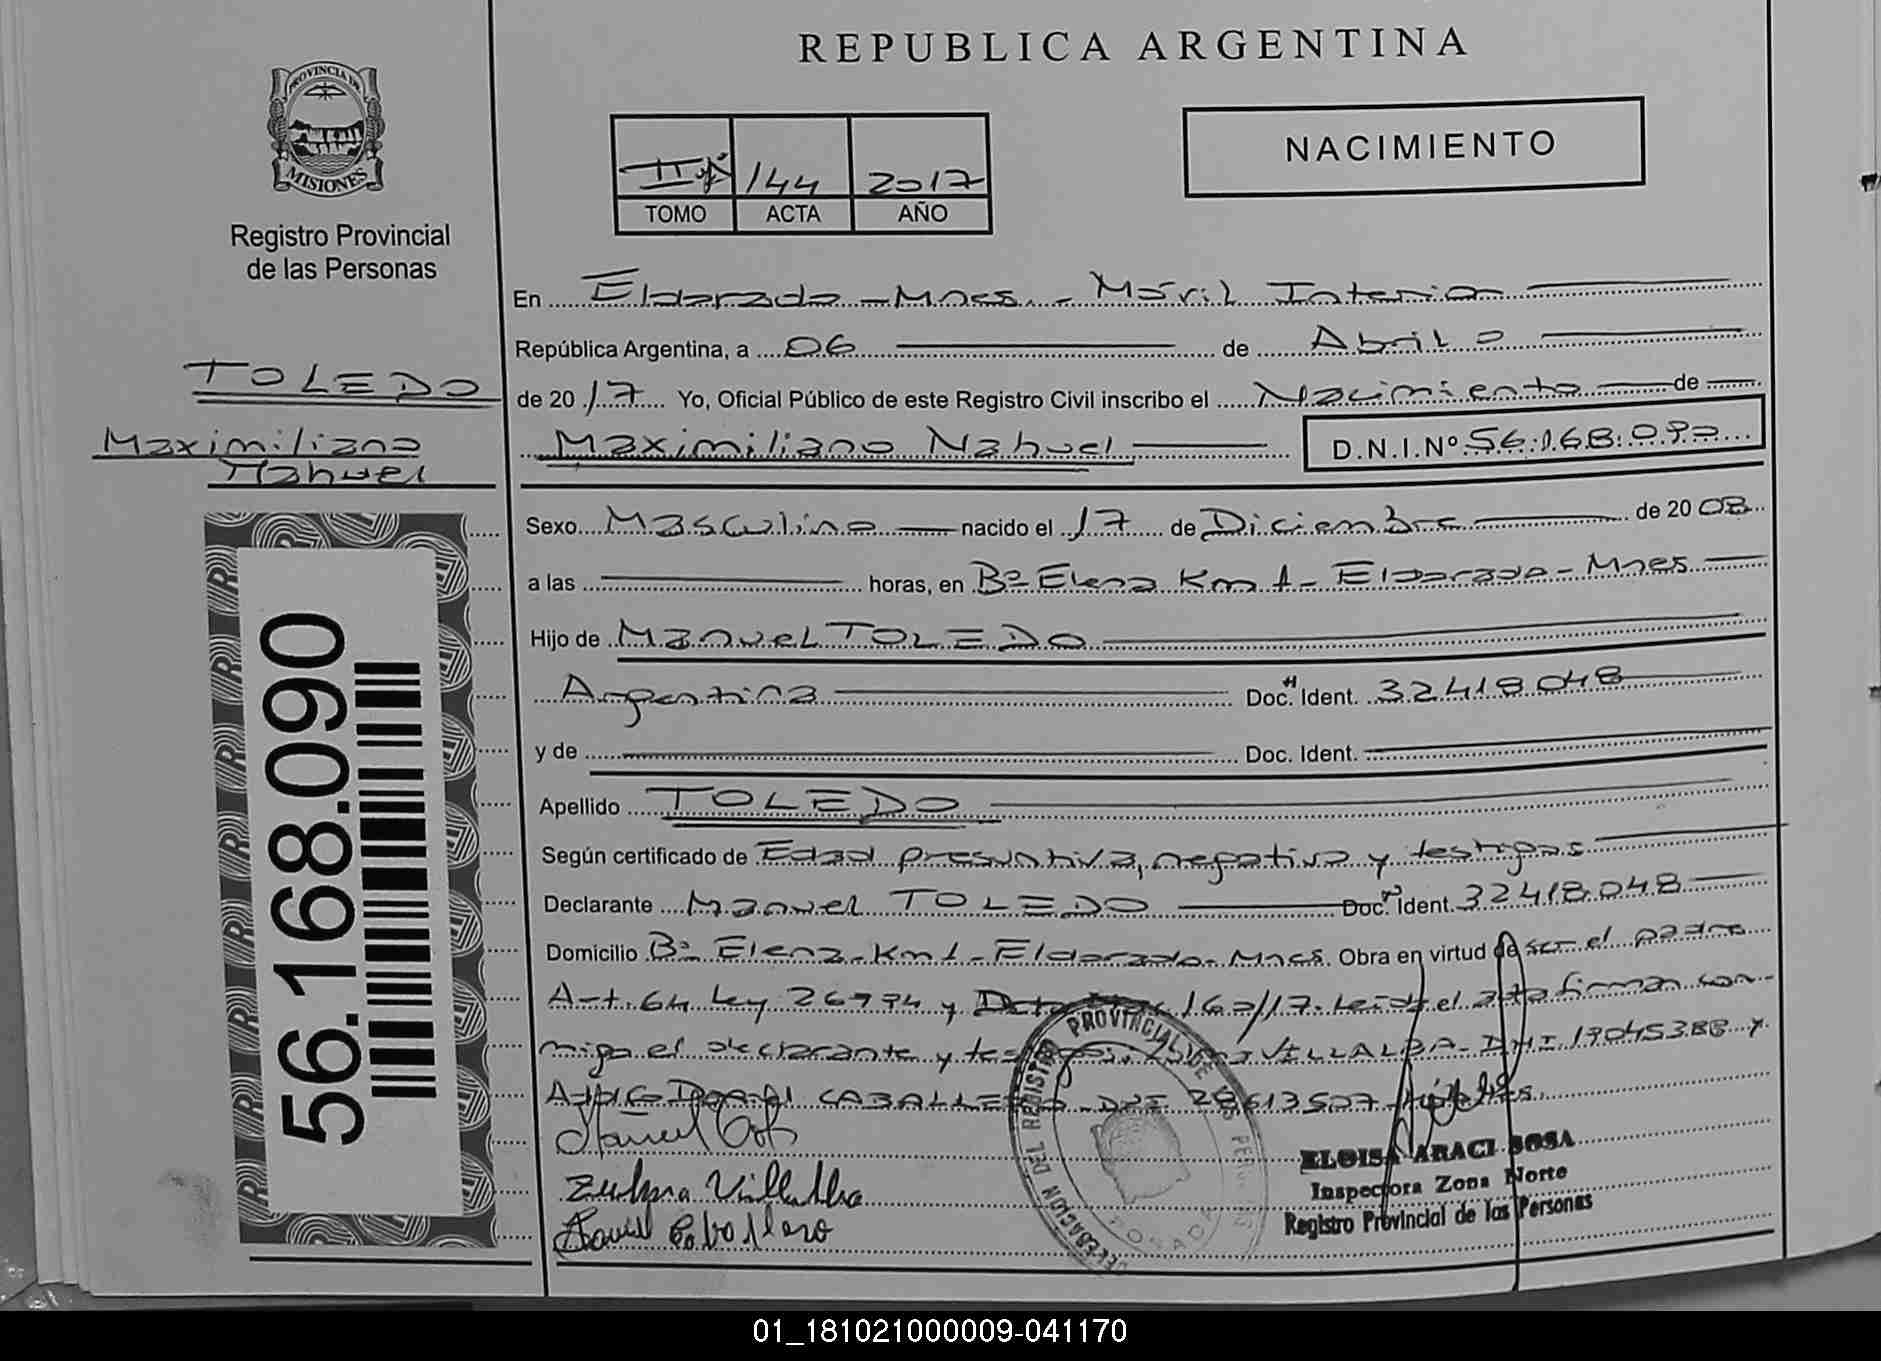 REPUBLICA ARGENTINA
PROVINCIA DE
MISIONES
Registro Provincial
de las Personas
144 2017
TOMO ACTA AÑO
NACIMIENTO
En Eldorado - Mnes. - Móvil Interior
República Argentina, a 06 de Abril
de 2017 Yo, Oficial Público de este Registro Civil inscribo el Nacimiento de
Maximiliano Nahuel D.N.I.Nº 56.168.090
TOLEDO
Maximiliano
Nahuel
56.168.090
Sexo Masculino nacido el 17 de Diciembre de 2008
a las horas, en Bº Elena Km 1 - Eldorado - Mnes
Hijo de Manuel TOLEDO
Argentina Doc. Ident. 32418048
y de Doc. Ident.
Apellido TOLEDO
Según certificado de Edad presuntiva, negativa y testigos
Declarante Manuel TOLEDO Doc. Ident. 32418048
Domicilio Bº Elena - Km 1 - Eldorado - Mnes. Obra en virtud de ser el padre
Art. 64 Ley 26994 y 160/17. Leída el acta firman con-
migo el declarante y VILLALBA - DNI 19045388 y
CABALLERO - DNI 28613507
Zulma Villalba
Caballero
DELEGACION DEL REGISTRO PROVINCIAL DE LAS PERSONAS
POSADAS
ELOISA ARACI SOSA
Inspectora Zona Norte
Registro Provincial de las Personas
01_181021000009-041170